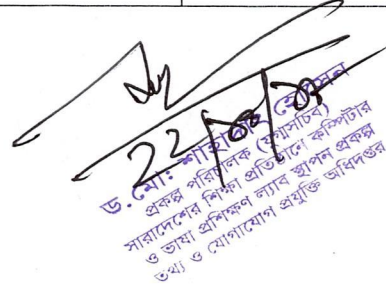 ড. মো: শাহাদাৎ হোসেন
প্রকল্প পরিচালক (যুগ্মসচিব)
সারাদেশের শিক্ষা প্রতিষ্ঠানে কম্পিউটার
ও ভাষা প্রশিক্ষণ ল্যাব স্থাপন প্রকল্প
তথ্য ও যোগাযোগ প্রযুক্তি অধিদপ্তর